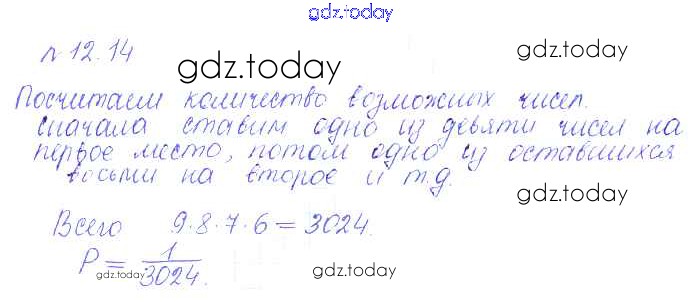 gdz.today
№ 12.14
gdz.today
gdz.today
Посчитаем количество возможных чисел.
Сначала ставим одно из девяти чисел на
первое место, потом одно из оставшихся
восьми на второе и т.д.
gdz.today
Всего 9·8·7·6 = 3024.
P = 1/3024.
gdz.today
gdz.today